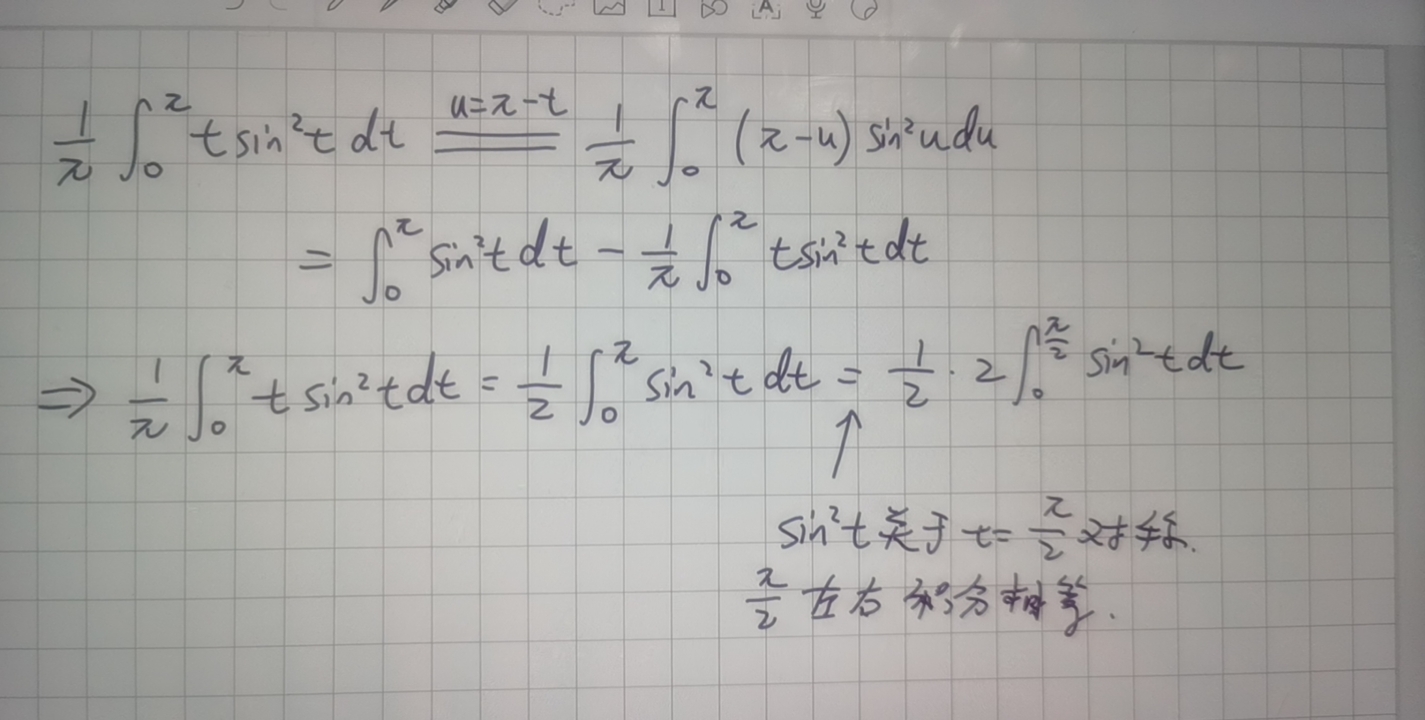 1/π ∫₀^π t sin²t dt =(u=π-t)= 1/π ∫₀^π (π-u) sin²u du
= ∫₀^π sin²t dt - 1/π ∫₀^π t sin²t dt
⇒ 1/π ∫₀^π t sin²t dt = 1/2 ∫₀^π sin²t dt = 1/2 · 2 ∫₀^(π/2) sin²t dt
↑
sin²t 关于 t= π/2 对称.
π/2 左右积分相等.